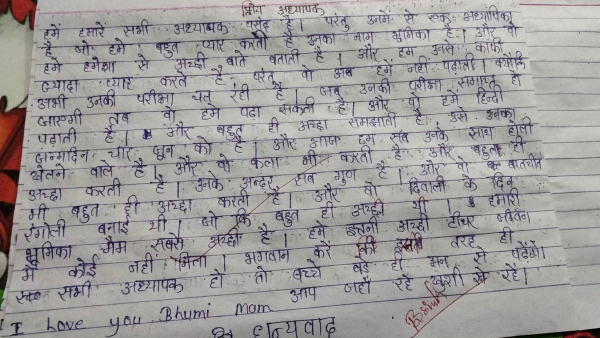 प्रिय अध्यापक
हमें हमारे सभी अध्यापक पसंद है। परंतु उनमें से एक अध्यापिका
है जो हमे बहुत प्यार करती है उनका नाम भुमिका है। और वो
हमे हमेशा से अच्छी बाते बताती है। और हम उनसे काफी
ज्यादा प्यार करते है परंतु वो अब हमें नहीं पढ़ाती। क्योंकि
अभी उनकी परीक्षा चल रही है। जब उनकी परीक्षा समाप्त हो
जाएगी तब वो हमे पढ़ा सकती है। और वो हमें हिन्दी
पढ़ाती है। और बहुत ही अच्छा समझाती है। उस उनका
जन्मदिन चार जून को है। और आज हम सब उनके साथ होली
खेलने वाले है। और वो कला भी करती है और बहुत ही
अच्छा करती है। उनके अन्दर सब गुण है। और वो बातचीत
भी बहुत ही अच्छा करती है। और वो दिवाली के दिन
रंगोली बनाई थी। जो कि बहुत ही अच्छी थी। हमारी
भूमिका मैम सबसे अच्छी है। हमे इतनी अच्छी टीचर जीवन
में कोई नहीं मिला। भगवान करें की इसी तरह ही
सभी अध्यापक हो तो बच्चे बड़े ही मन से पढ़ेंगे।
आप जहाँ रहे खुशी से रहें।
I love you Bhumi Mam
धन्यवाद